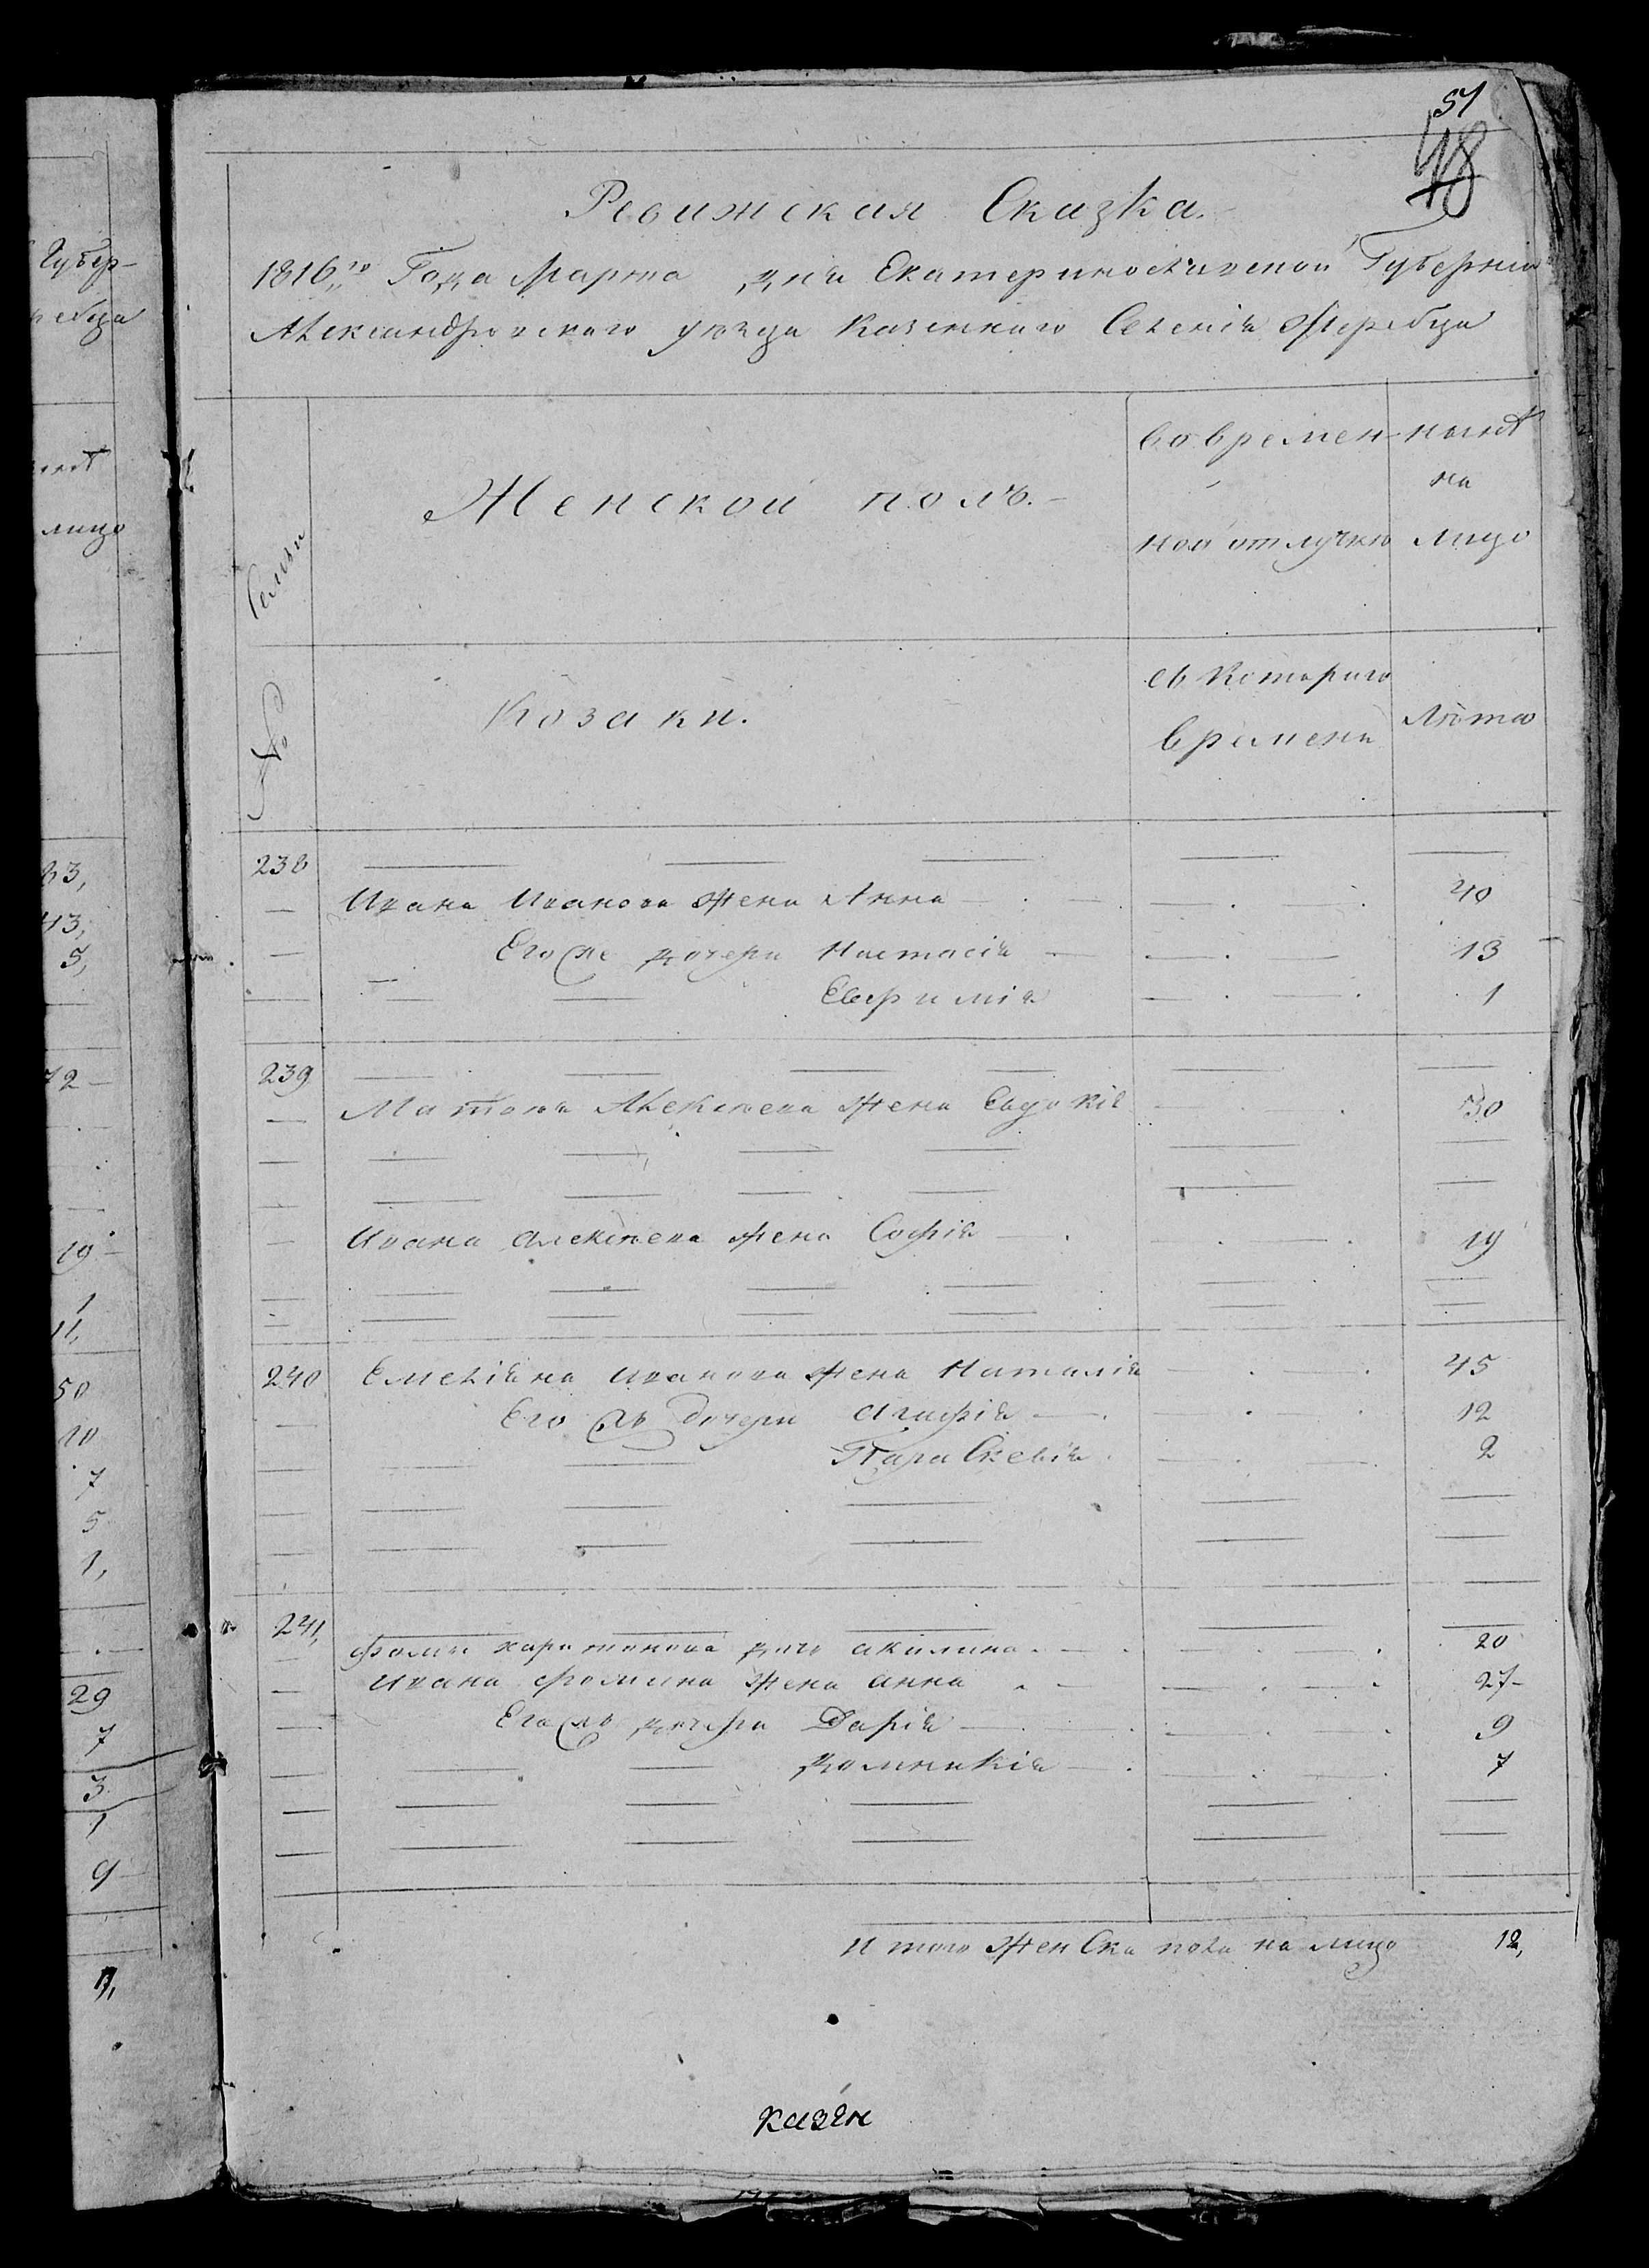 51
48
Ревижская Сказка.
1816го Года Марта дня Екатеринославской Губернии
Александровского уезда Казенного Селения Жеребца
Семьи
№
Женской полъ.
Во времен-
ной отлучке
ныне
на
лицо
Козаки.
съ Которого
времени
Лета
238
Ивана Иванова жена Анна 40
Его же дочери Настасія 13
Евфимія 1
239
Матвея Алексеева жена Евдокія 30
Ивана Алексеева жена Софія 19
240 Емеліяна Иванова жена Наталія 45
Его же дочери Агафія 12
Параскевія 2
241,
Фомы Харитонова дочь Акилина 20
Ивана Фомина жена Анна 27
Его же дочери Дарія 9
Домникія 7
Итого женска пола на лицо 12,
казен
Губер-
лицо
43,
5,
72
19
1
11,
50
10
7
5
1,
29
7
3
1
9